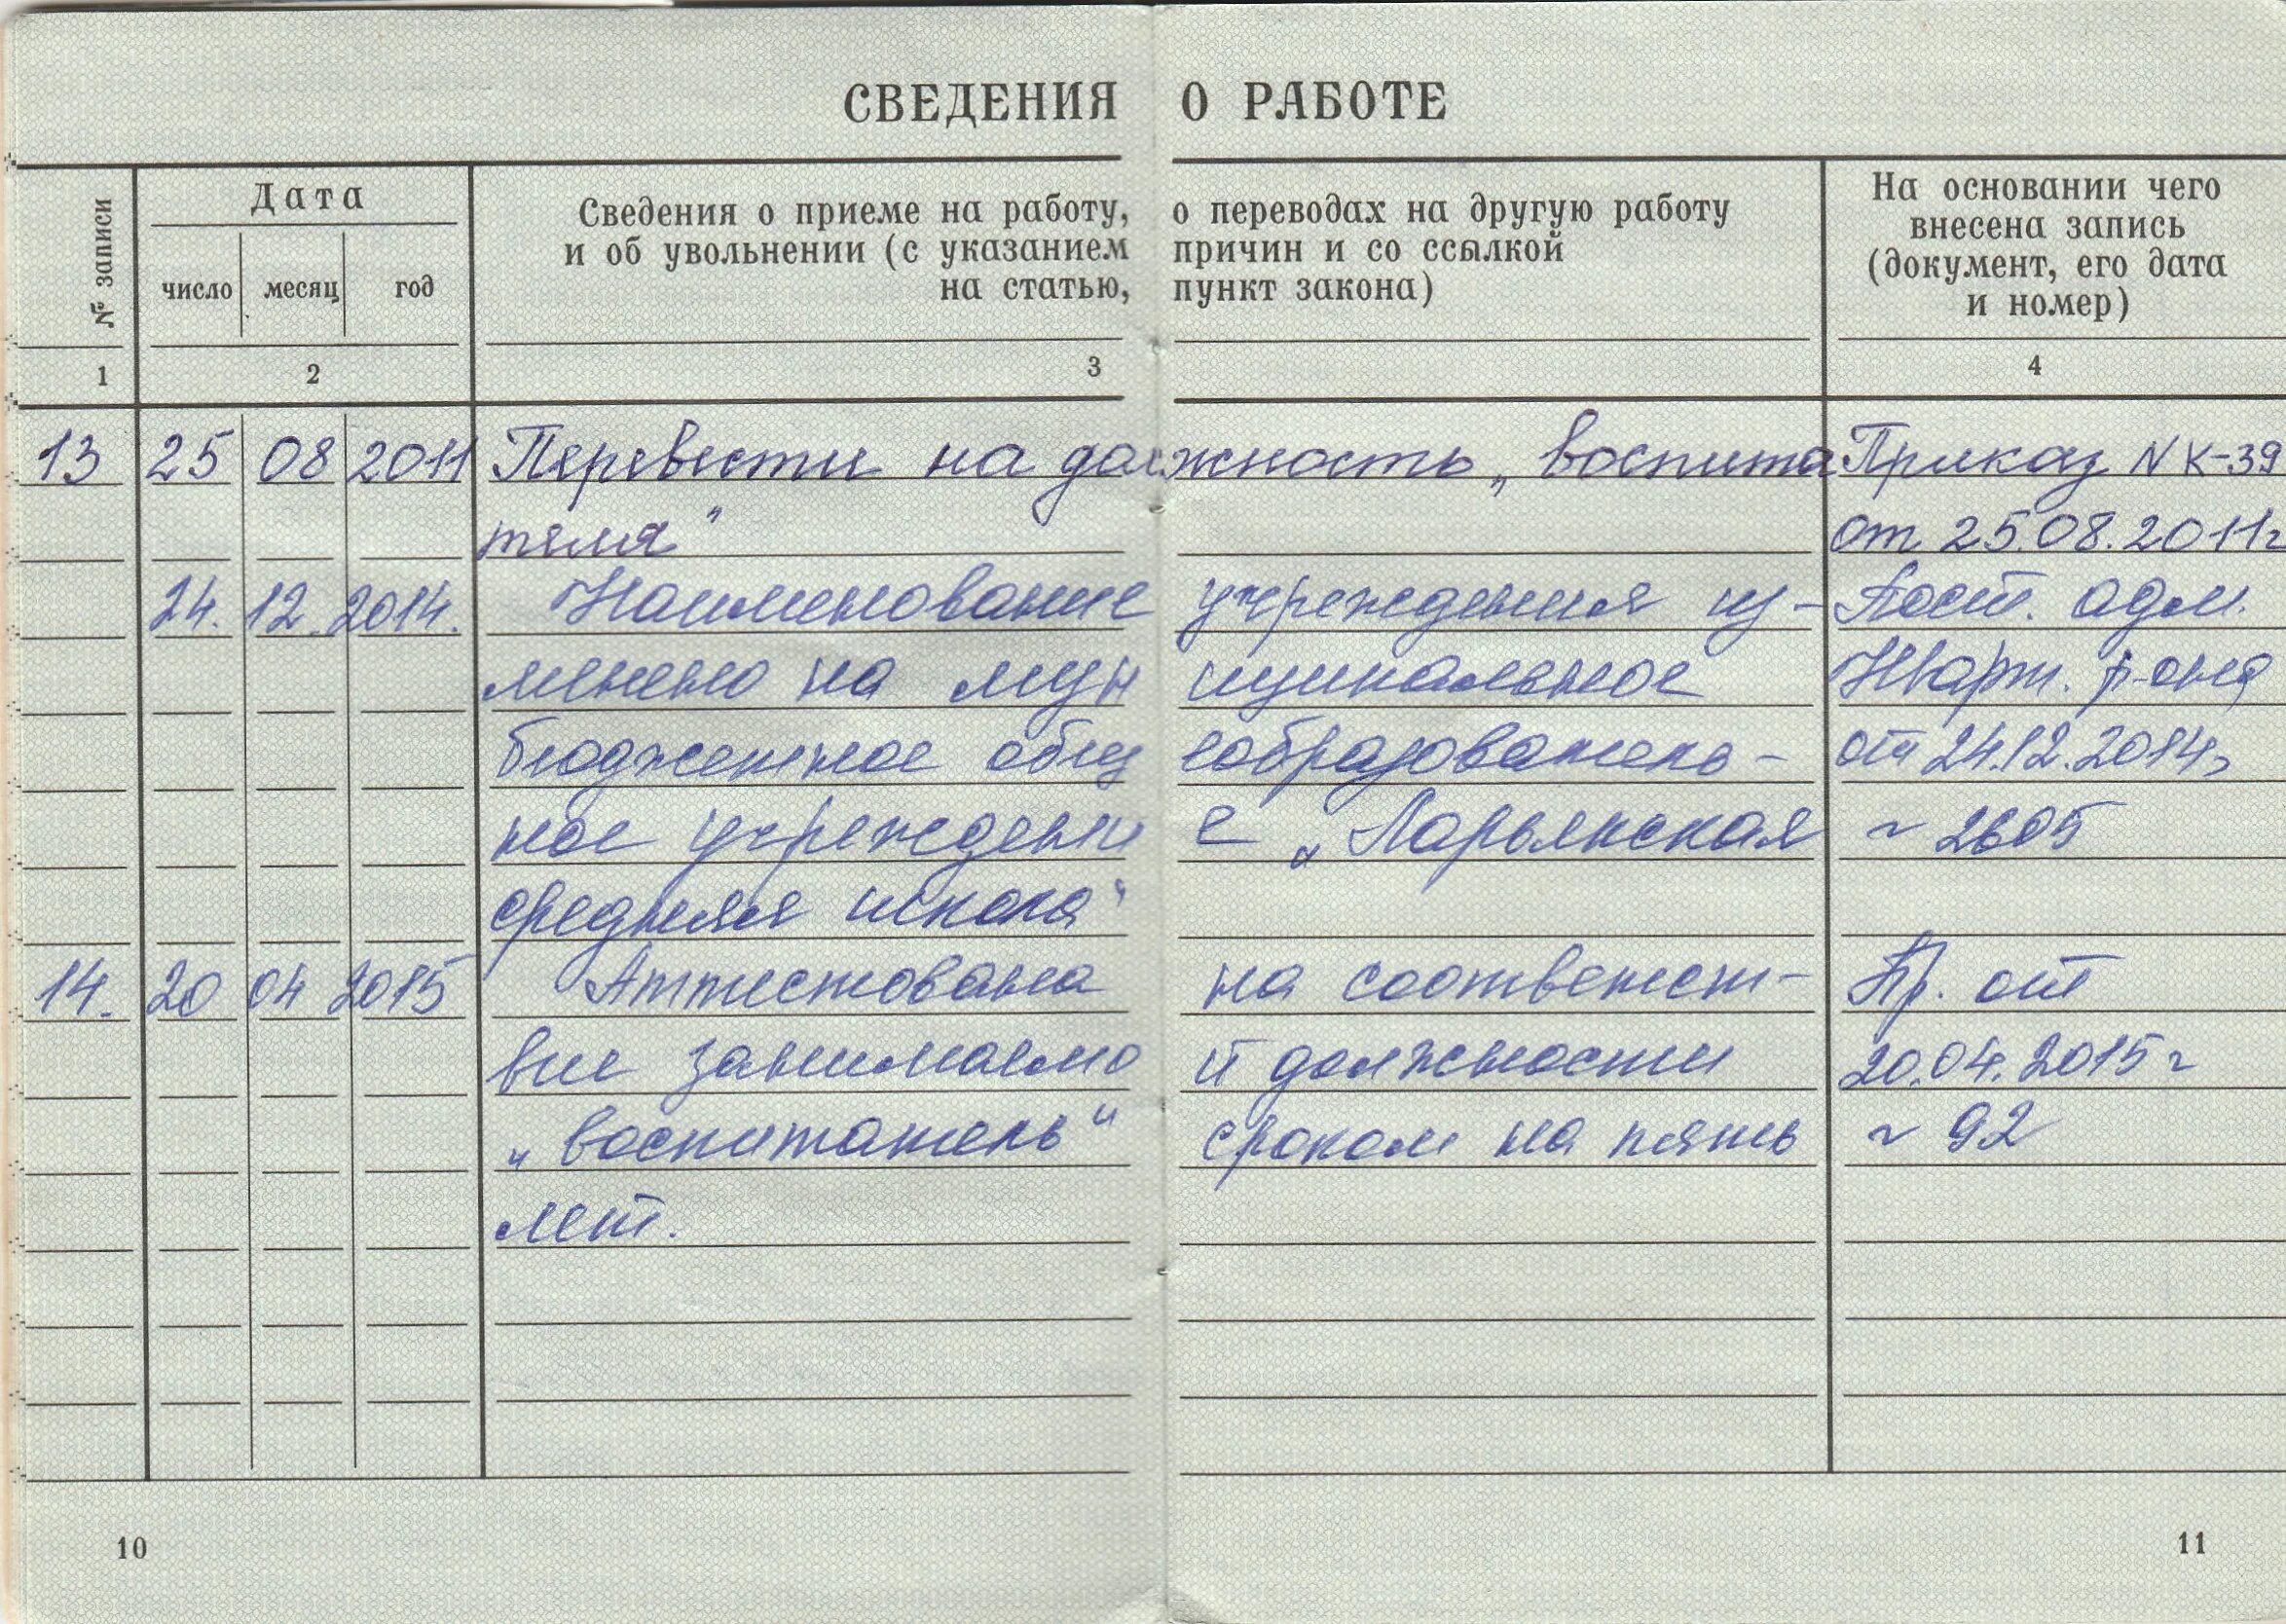 СВЕДЕНИЯ О РАБОТЕ
№ записи
Дата
число месяц год
Сведения о приеме на работу, о переводах на другую работу
и об увольнении (с указанием причин и со ссылкой
на статью, пункт закона)
На основании чего
внесена запись
(документ, его дата
и номер)
1 2 3 4
13 25 08 2011 Перевести на должность „воспита Приказ N К-39
теля" от 25.08.2011г
24. 12. 2014. Наименование учреждения из- Пост. адм.
менено на муниципальное Нварт. р-она
бюджетное общеобразователь- от 24.12.2014г
ное учреждение „Ларьякская № 2605
средняя школа"
14. 20 04 2015 Аттестована на соответст- Пр. от
вие занимаемой должности 20.04.2015г
„воспитатель" сроком на пять № 92
лет.
10 11